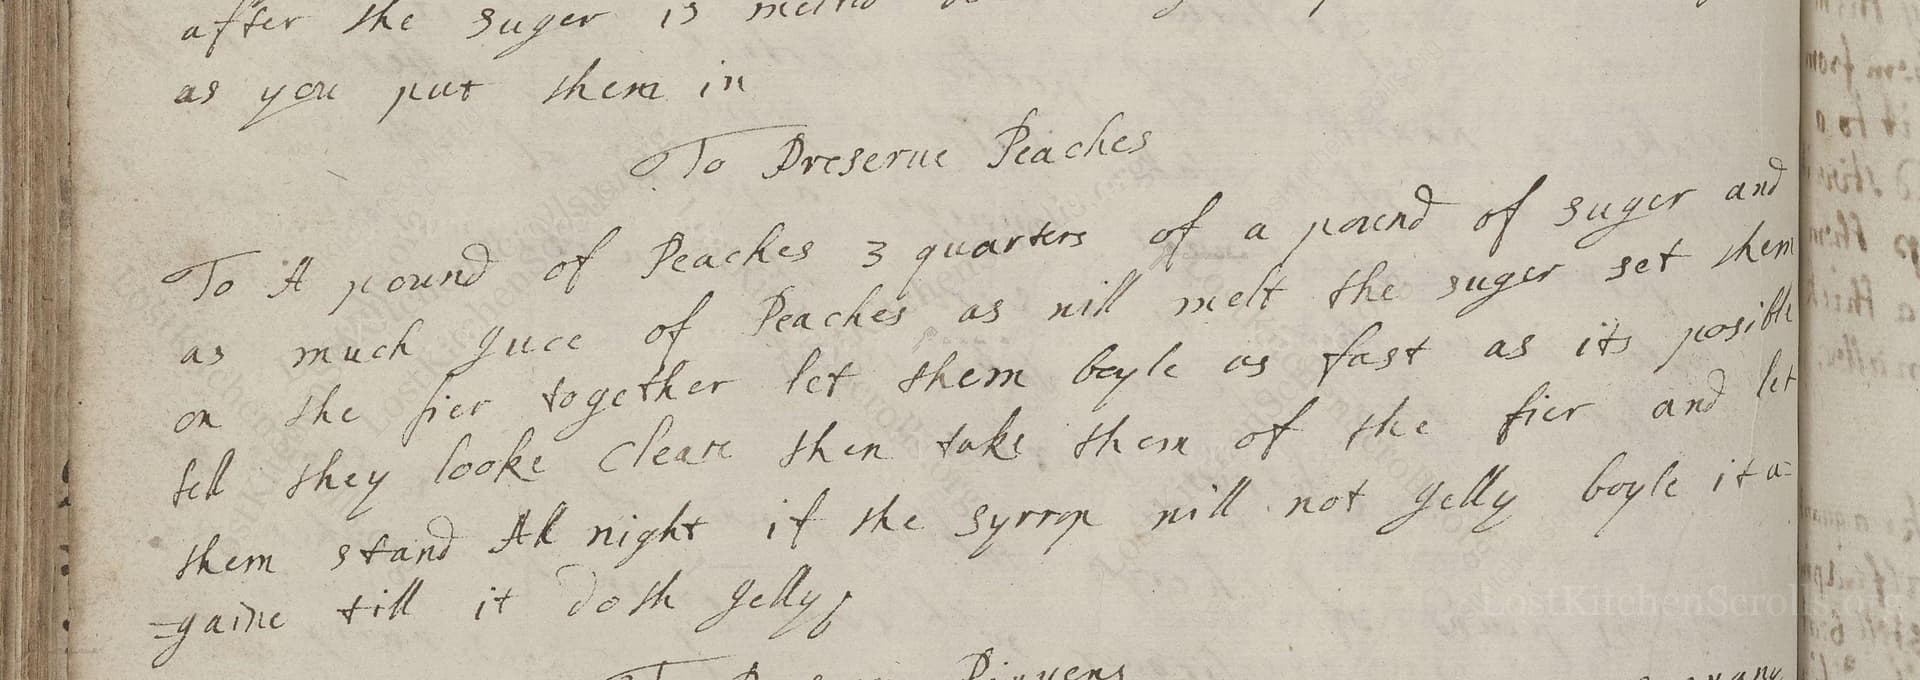 after the suger is
as you put them in
To Preserue Peaches
To A pound of Peaches 3 quarters of a pound of suger and
as much Juce of Peaches as will melt the suger set them
on the fier together let them boyle as fast as its posible
tell they looke Cleare then take them of the fier and let
them stand All night if the syrrop will not gelly boyle it a=
=gaine till it doth gelly
To
LostKitchenScrolls.org